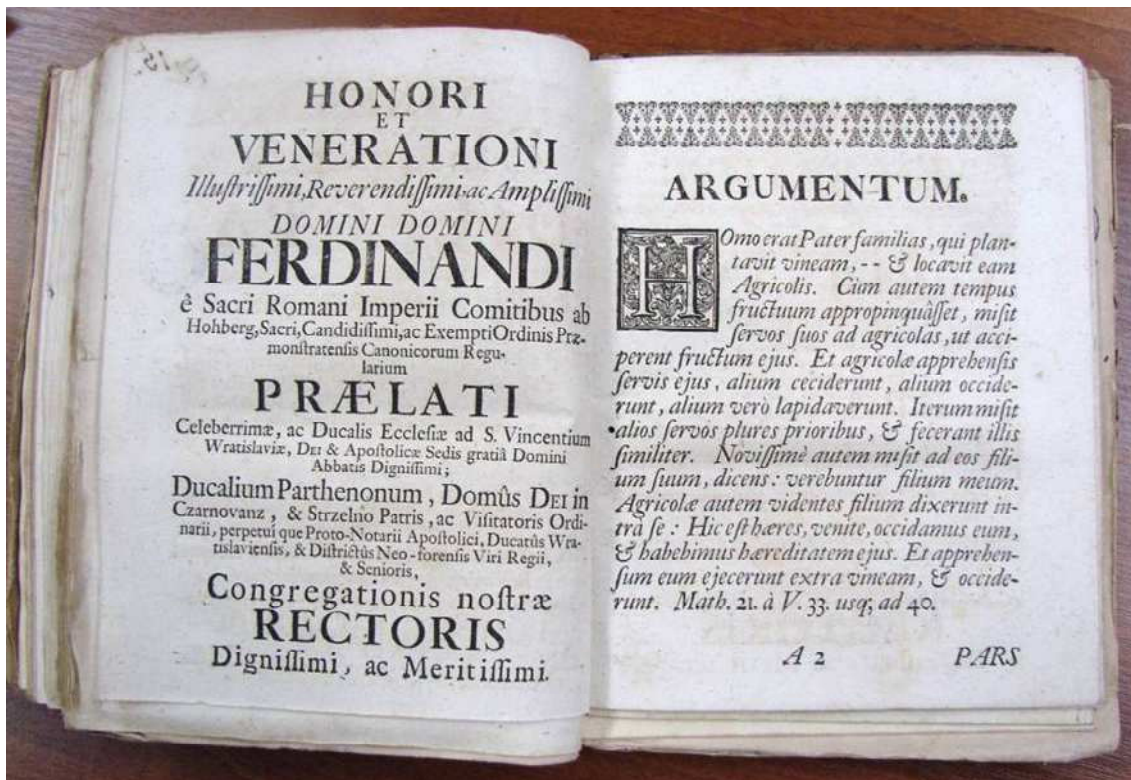 HONORI
ET
VENERATIONI
Illuſtriſſimi, Reverendiſſimi ac Ampliſſimi
DOMINI DOMINI
FERDINANDI
è Sacri Romani Imperii Comitibus ab
Hohberg, Sacri, Candidiſſimi, ac Exempti Ordinis Præ-
monſtratenſis Canonicorum Regu-
larium
PRÆLATI
Celeberrimæ, ac Ducalis Eccleſiæ ad S. Vincentium
Wratislaviæ, DEI & Apoſtolicæ Sedis gratiâ Domini
Abbatis Digniſſimi;
Ducalium Parthenonum, Domûs DEI in
Czarnovanz, & Strzelno Patris, ac Viſitatoris Ordi-
narii, perpetui que Proto-Notarii Apoſtolici, Ducatûs Wra-
tislavienſis, & Diſtrictûs Neo-forenſis Viri Regii,
& Senioris,
Congregationis noſtræ
RECTORIS
Digniſſimi, ac Meritiſſimi.
ARGUMENTUM.
HOmo erat Pater familias, qui plan-
tavit vineam, -- & locavit eam
Agricolis. Cùm autem tempus
fructuum appropinquâſſet, miſit
ſervos ſuos ad agricolas, ut acci-
perent fructum ejus. Et agricolæ apprehenſis
ſervis ejus, alium ceciderunt, alium occide-
runt, alium verò lapidaverunt. Iterum miſit
alios ſervos plures prioribus, & fecerant illis
ſimiliter. Noviſſimè autem miſit ad eos fili-
um ſuum, dicens: verebuntur filium meum.
Agricolæ autem videntes filium dixerunt in-
tra ſe: Hic eſt hæres, venite, occidamus eum,
& habebimus hæreditatem ejus. Et apprehen-
ſum eum ejecerunt extra vineam, & occide-
runt. Math. 21. à V. 33. usq; ad 40.
A 2 PARS